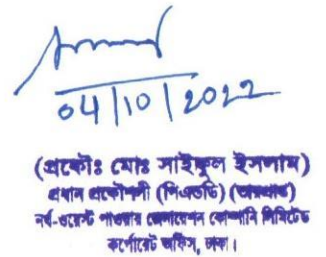 04/10/2022
(প্রকৌঃ মোঃ সাইফুল ইসলাম)
প্রধান প্রকৌশলী (পিএন্ডডি) (অঃদাঃ)
নর্থ-ওয়েস্ট পাওয়ার জেনারেশন কোম্পানি লিমিটেড
কর্পোরেট অফিস, ঢাকা।